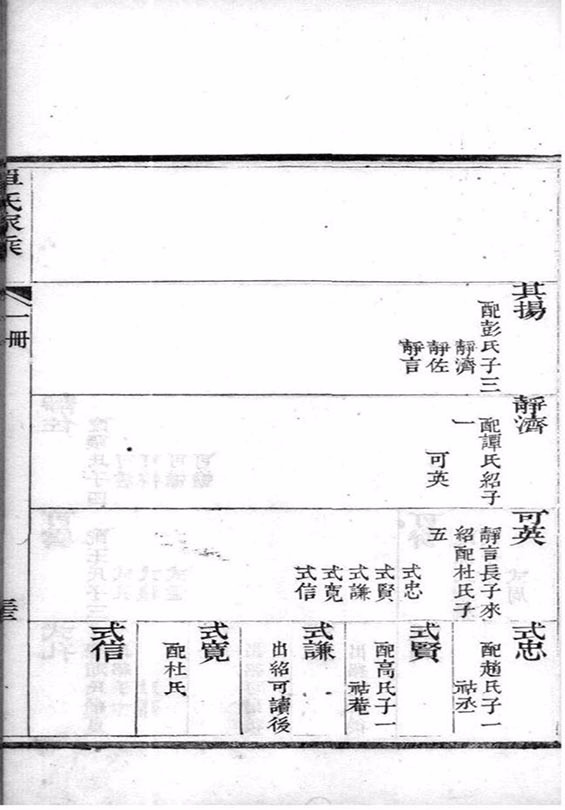 其揚
配彭氏子三
靜濟
靜佐
靜言
靜濟
配譚氏紹子
一
可英
可英
靜言長子來
紹配杜氏子
五
式忠
式賢
式謙
式寬
式信
式忠
配趙氏子一
祜丞
式賢
配高氏子一
祜菴
式謙
出紹可讀後
式寬
配杜氏
式信
氏家乘
一冊